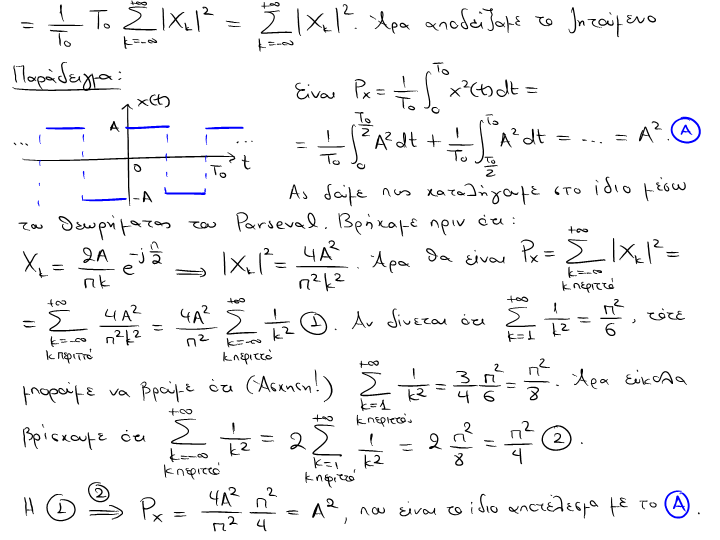 = 1/T₀ T₀ Σ_{k=-∞}^{+∞} |X_k|² = Σ_{k=-∞}^{+∞} |X_k|². Άρα αποδείξαμε το ζητούμενο
Παράδειγμα:
x(t)
A
...
...
0
T₀
t
-A
Είναι P_x = 1/T₀ ∫_0^{T₀} x²(t) dt =
= 1/T₀ ∫_0^{T₀/2} A² dt + 1/T₀ ∫_{T₀/2}^{T₀} A² dt = ... = A². Ⓐ
Ας δούμε πως καταλήγουμε στο ίδιο μέσω
του Θεωρήματος του Parseval. Βρήκαμε πριν ότι:
X_k = 2A/πk e^{-jπ/2} ⟹ |X_k|² = 4A²/π²k². Άρα θα είναι P_x = Σ_{k=-∞, k περιττό}^{+∞} |X_k|² =
= Σ_{k=-∞, k περιττό}^{+∞} 4A²/π²k² = 4A²/π² Σ_{k=-∞, k περιττό}^{+∞} 1/k² ①. Αν δίνεται ότι Σ_{k=1}^{+∞} 1/k² = π²/6, τότε
μπορούμε να βρούμε ότι (Άσκηση!) Σ_{k=1, k περιττό}^{+∞} 1/k² = 3/4 π²/6 = π²/8. Άρα εύκολα
βρίσκουμε ότι Σ_{k=-∞, k περιττό}^{+∞} 1/k² = 2 Σ_{k=1, k περιττό}^{+∞} 1/k² = 2 π²/8 = π²/4 ②.
Η ① ⟹^② P_x = 4A²/π² π²/4 = A², που είναι το ίδιο αποτέλεσμα με το Ⓐ.